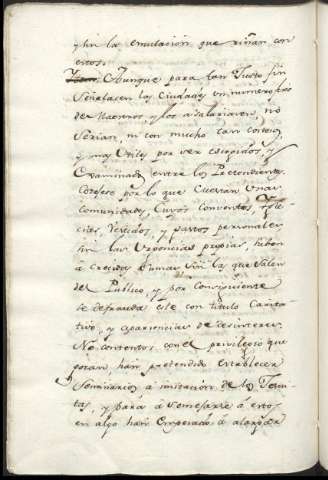 y sin la emulación que riñan con
estos.
Aunque para tan Justo fin
Señalasen las Ciudades un numero
de Maestros, y los asalariasen, no
serian, ni con mucho tan costosos,
y mas Utiles por ser escogidos, y
Examinados entre los Pretendientes.
Cotejese por lo que Cuestan Unas
comunidades, Cuyos Conventos, Igle
cias, Vestidos, y gastos personales
sin las Urgencias propias, suben
a crecidas Sumas
del Publico, y por Consiguiente
se defrauda este con titulo Carita
tivo, y apariencias de desinteres.
No contentos con el privilegio que
gozan, han pretendido establecer
Seminarios a imitación de los Jesui
tas, y para á semejarse á estos
en algo han Empezado á alargar